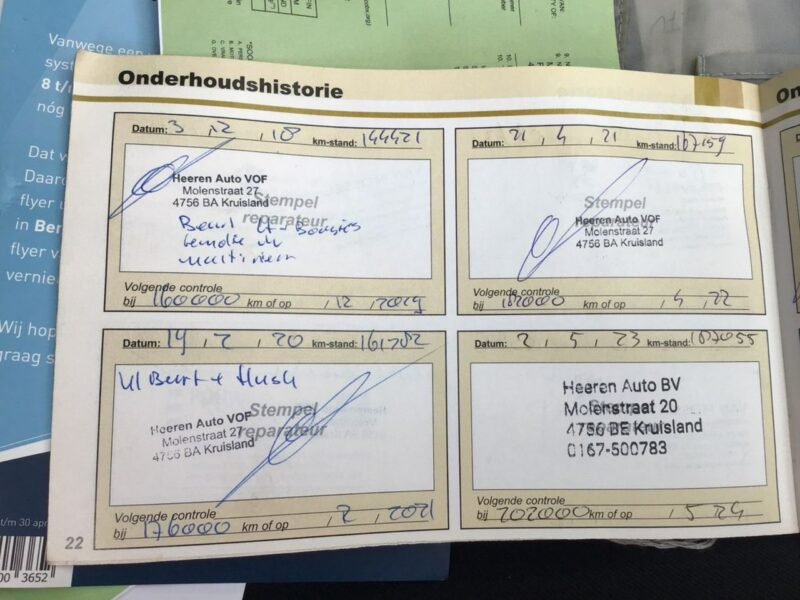 Vanwege een
syst
8 t/m
nóg
Dat w
Daaro
flyer u
in Ber
flyer v
vernie
Wij hop
graag s
t/m 30 apr
00 3652
Onderhoudshistorie
Datum: 3 , 12 , 18 km-stand: 144421
Stempel
reparateur
Heeren Auto VOF
Molenstraat 27
4756 BA Kruisland
Beurt
multiriem
Volgende controle
bij 160000 km of op , 12 , 2019
Datum: 21 , 4 , 21 km-stand: 167159
Stempel
Heeren Auto VOF
Molenstraat 27
4756 BA Kruisland
Volgende controle
bij 182000 km of op , 4 , 22
Datum: 19 , 2 , 20 km-stand: 161702
Kl Beurt + flush
Stempel
reparateur
Heeren Auto VOF
Molenstraat 27
4756 BA Kruisland
Volgende controle
bij 176000 km of op , 2 , 2021
Datum: 2 , 5 , 23 km-stand: 187055
Heeren Auto BV
Molenstraat 20
4756 BE Kruisland
0167-500783
Volgende controle
bij 202000 km of op , 5 24
22
On